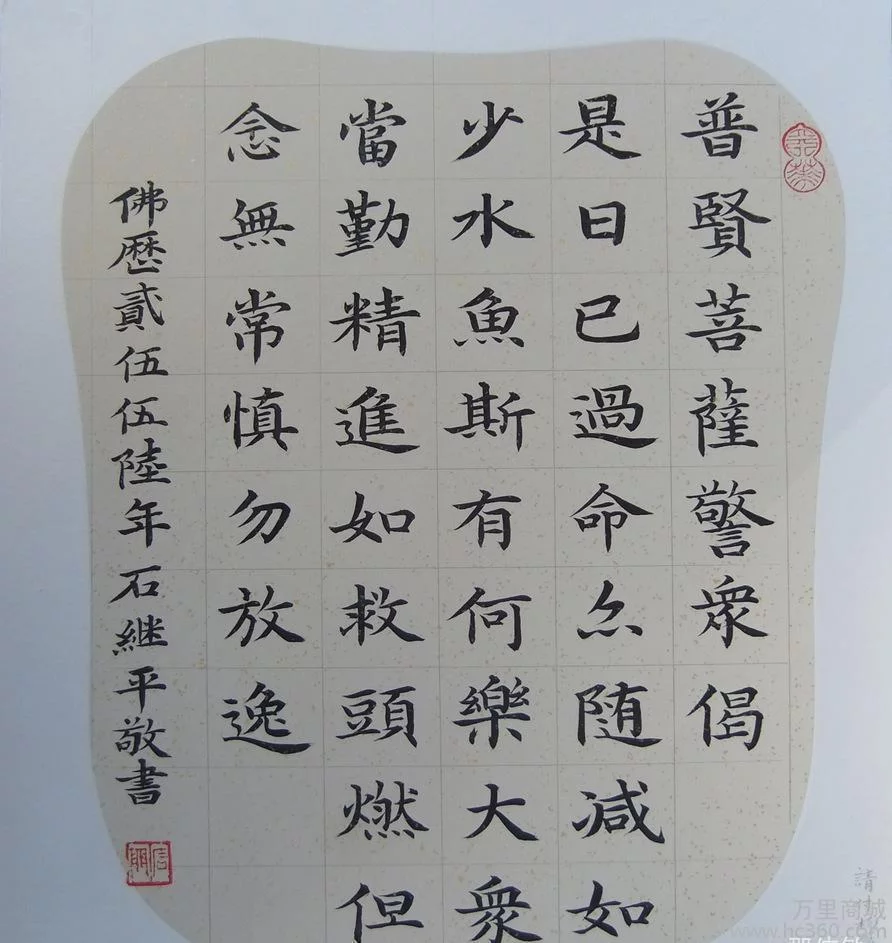 普賢菩薩警衆偈
是日已過命亦随减如
少水魚斯有何樂大衆
當勤精進如救頭燃但
念無常慎勿放逸
佛歷貳伍伍陸年石継平敬書
万里商城
www.hc360.com